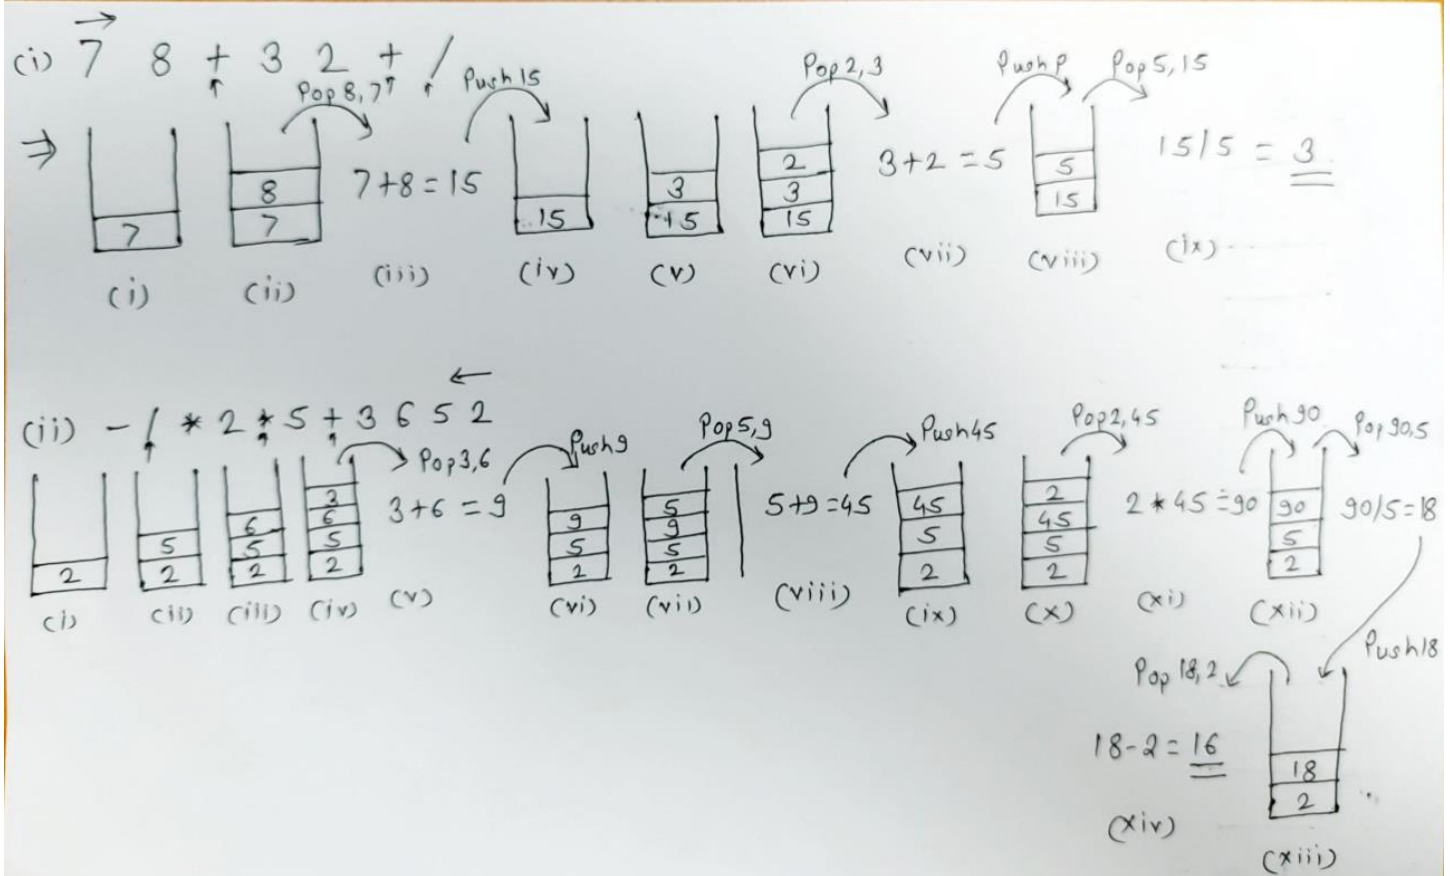 (i) 7 8 + 3 2 + /
Pop 8,7
Push 15
Pop 2,3
Push P
Pop 5,15
7
8
7
7+8=15
15
3
15
2
3
15
3+2=5
5
15
15/5 = 3
(i) (ii) (iii) (iv) (v) (vi) (vii) (viii) (ix)
(ii) - / * 2 * 5 + 3 6 5 2
Pop 3,6
Push 9
Pop 5,9
Push 45
Pop 2,45
Push 90
Pop 90,5
2
5
2
6
5
2
3
6
5
2
3+6=9
9
5
2
5
9
5
2
5+9=45
45
5
2
2
45
5
2
2*45=90
90
5
2
90/5=18
(i) (ii) (iii) (iv) (v) (vi) (vii) (viii) (ix) (x) (xi) (xii)
Push 18
Pop 18,2
18-2=16
18
2
(xiv)
(xiii)